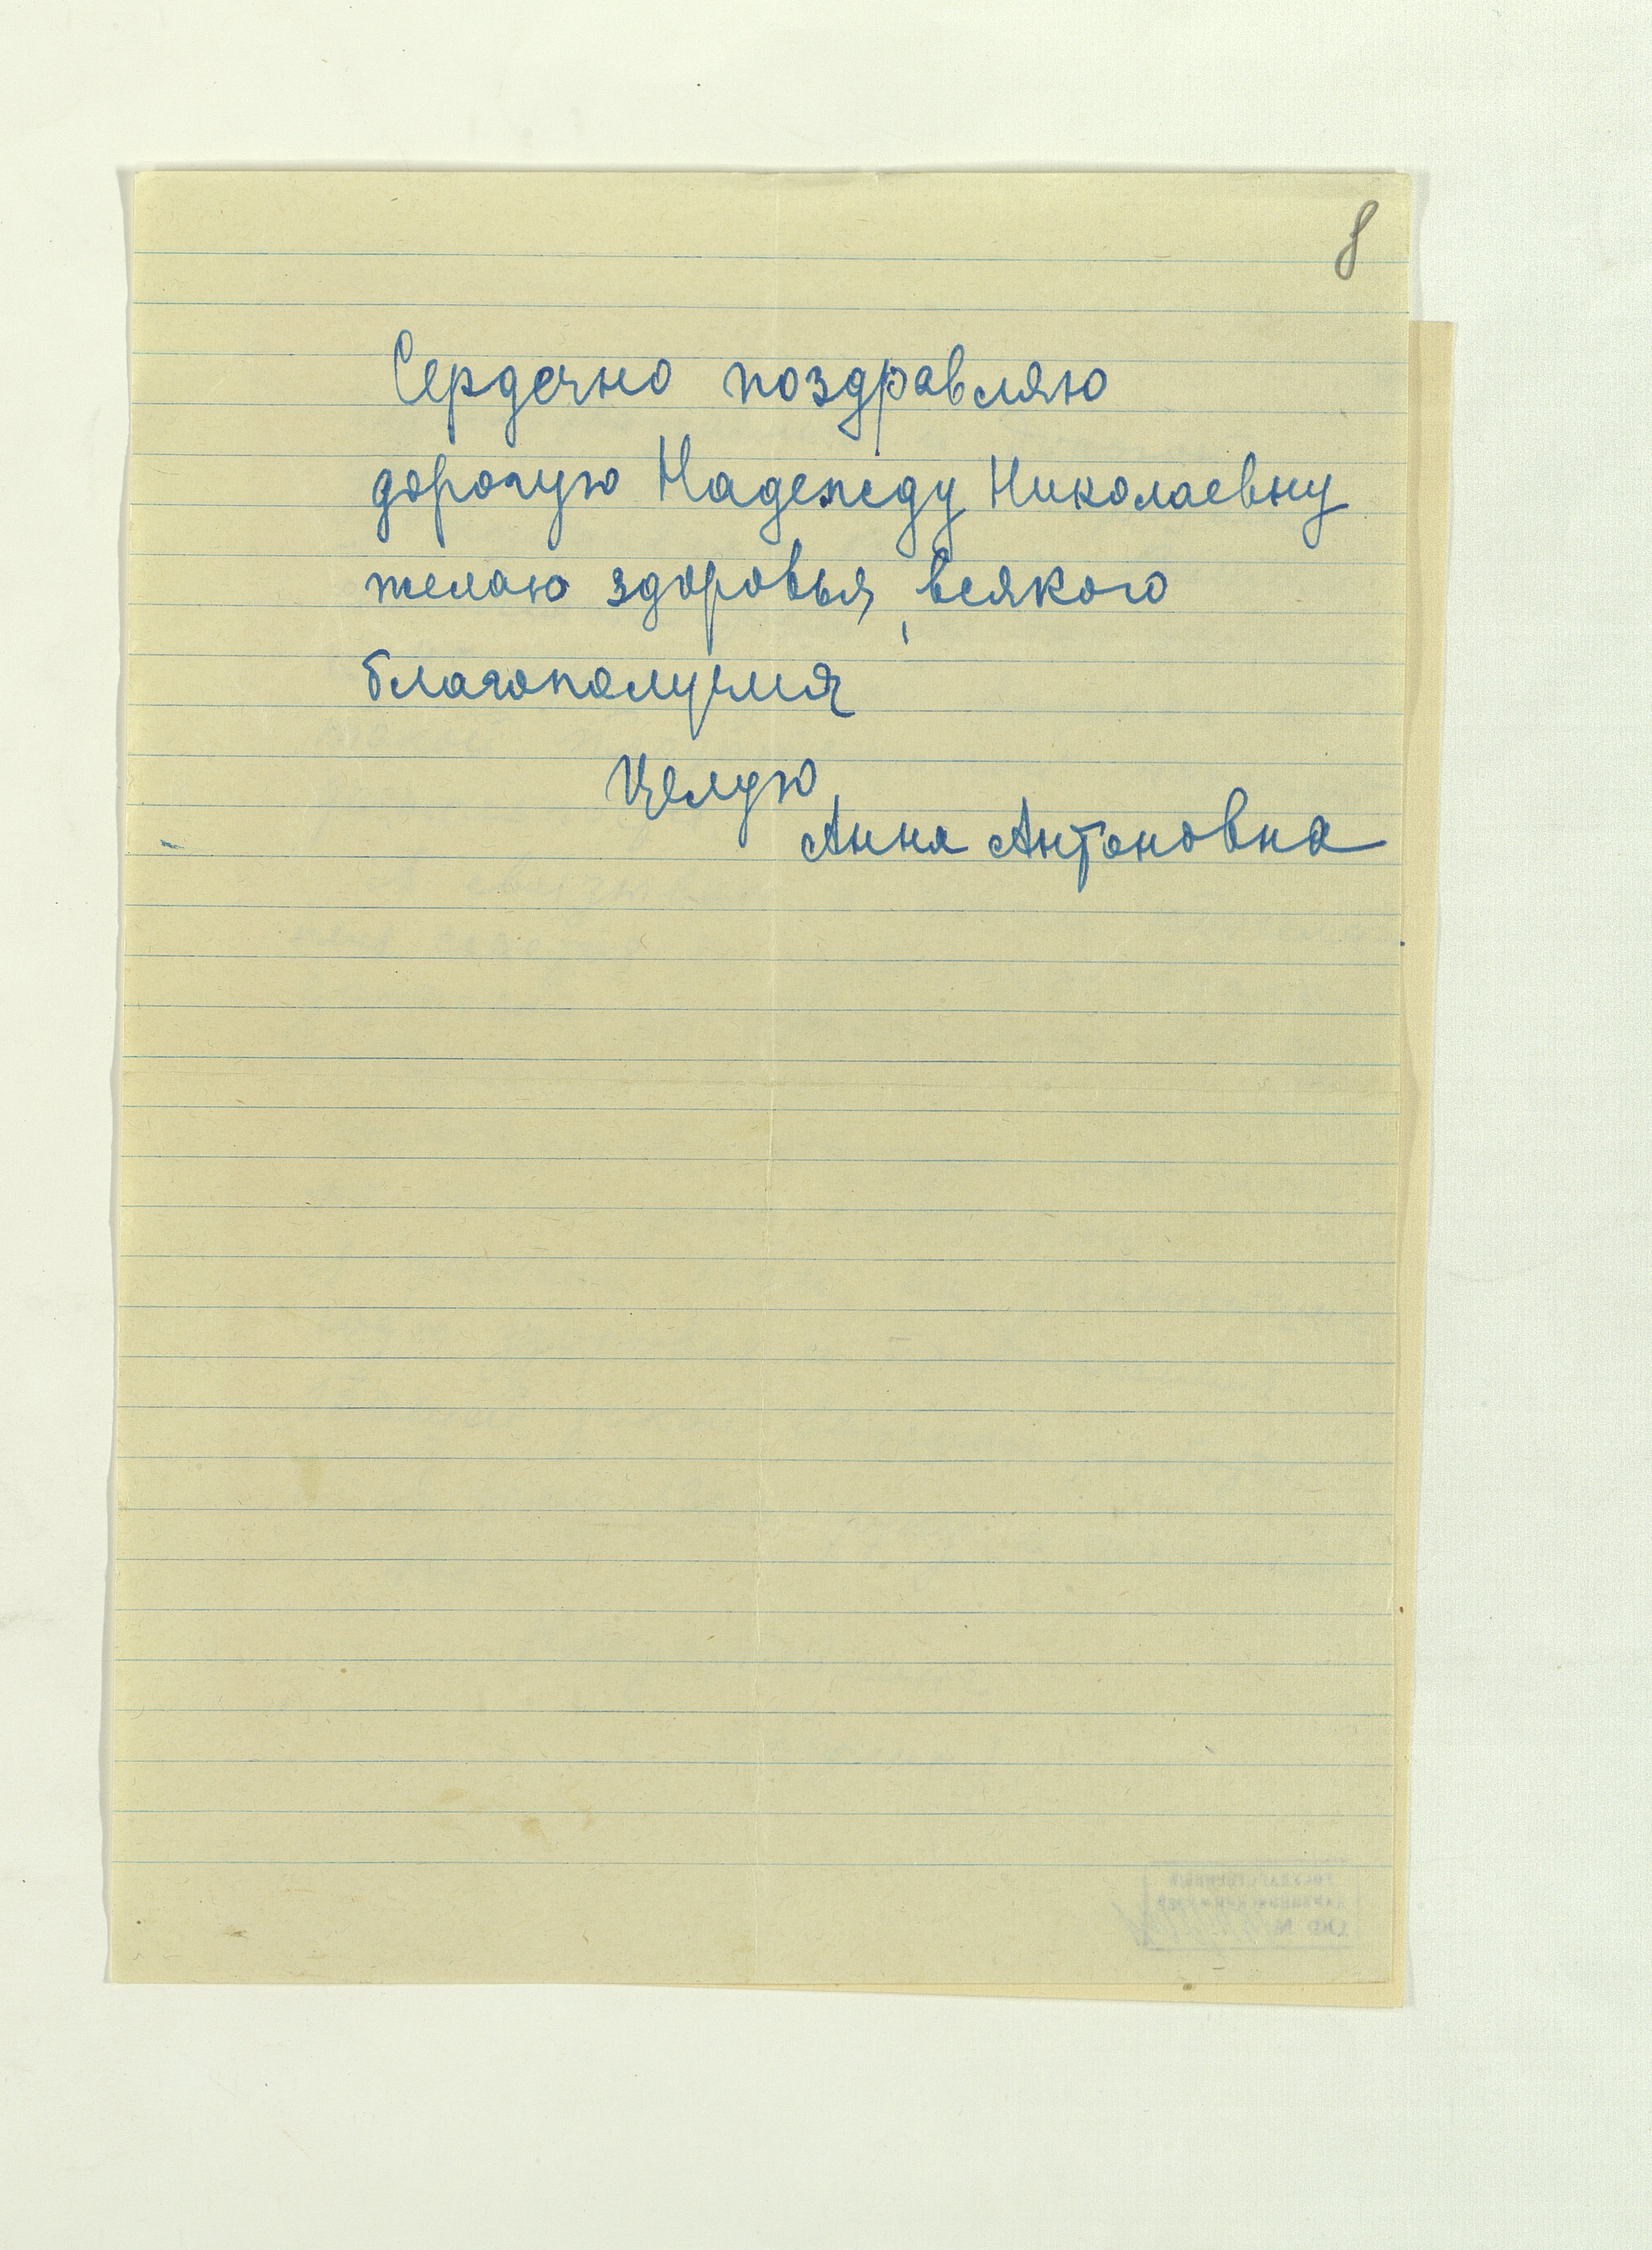 8
Сердечно поздравляю
дорогую Надежду Николаевну
желаю здоровья, всякого
благополучия
Целую
Анна Антоновна